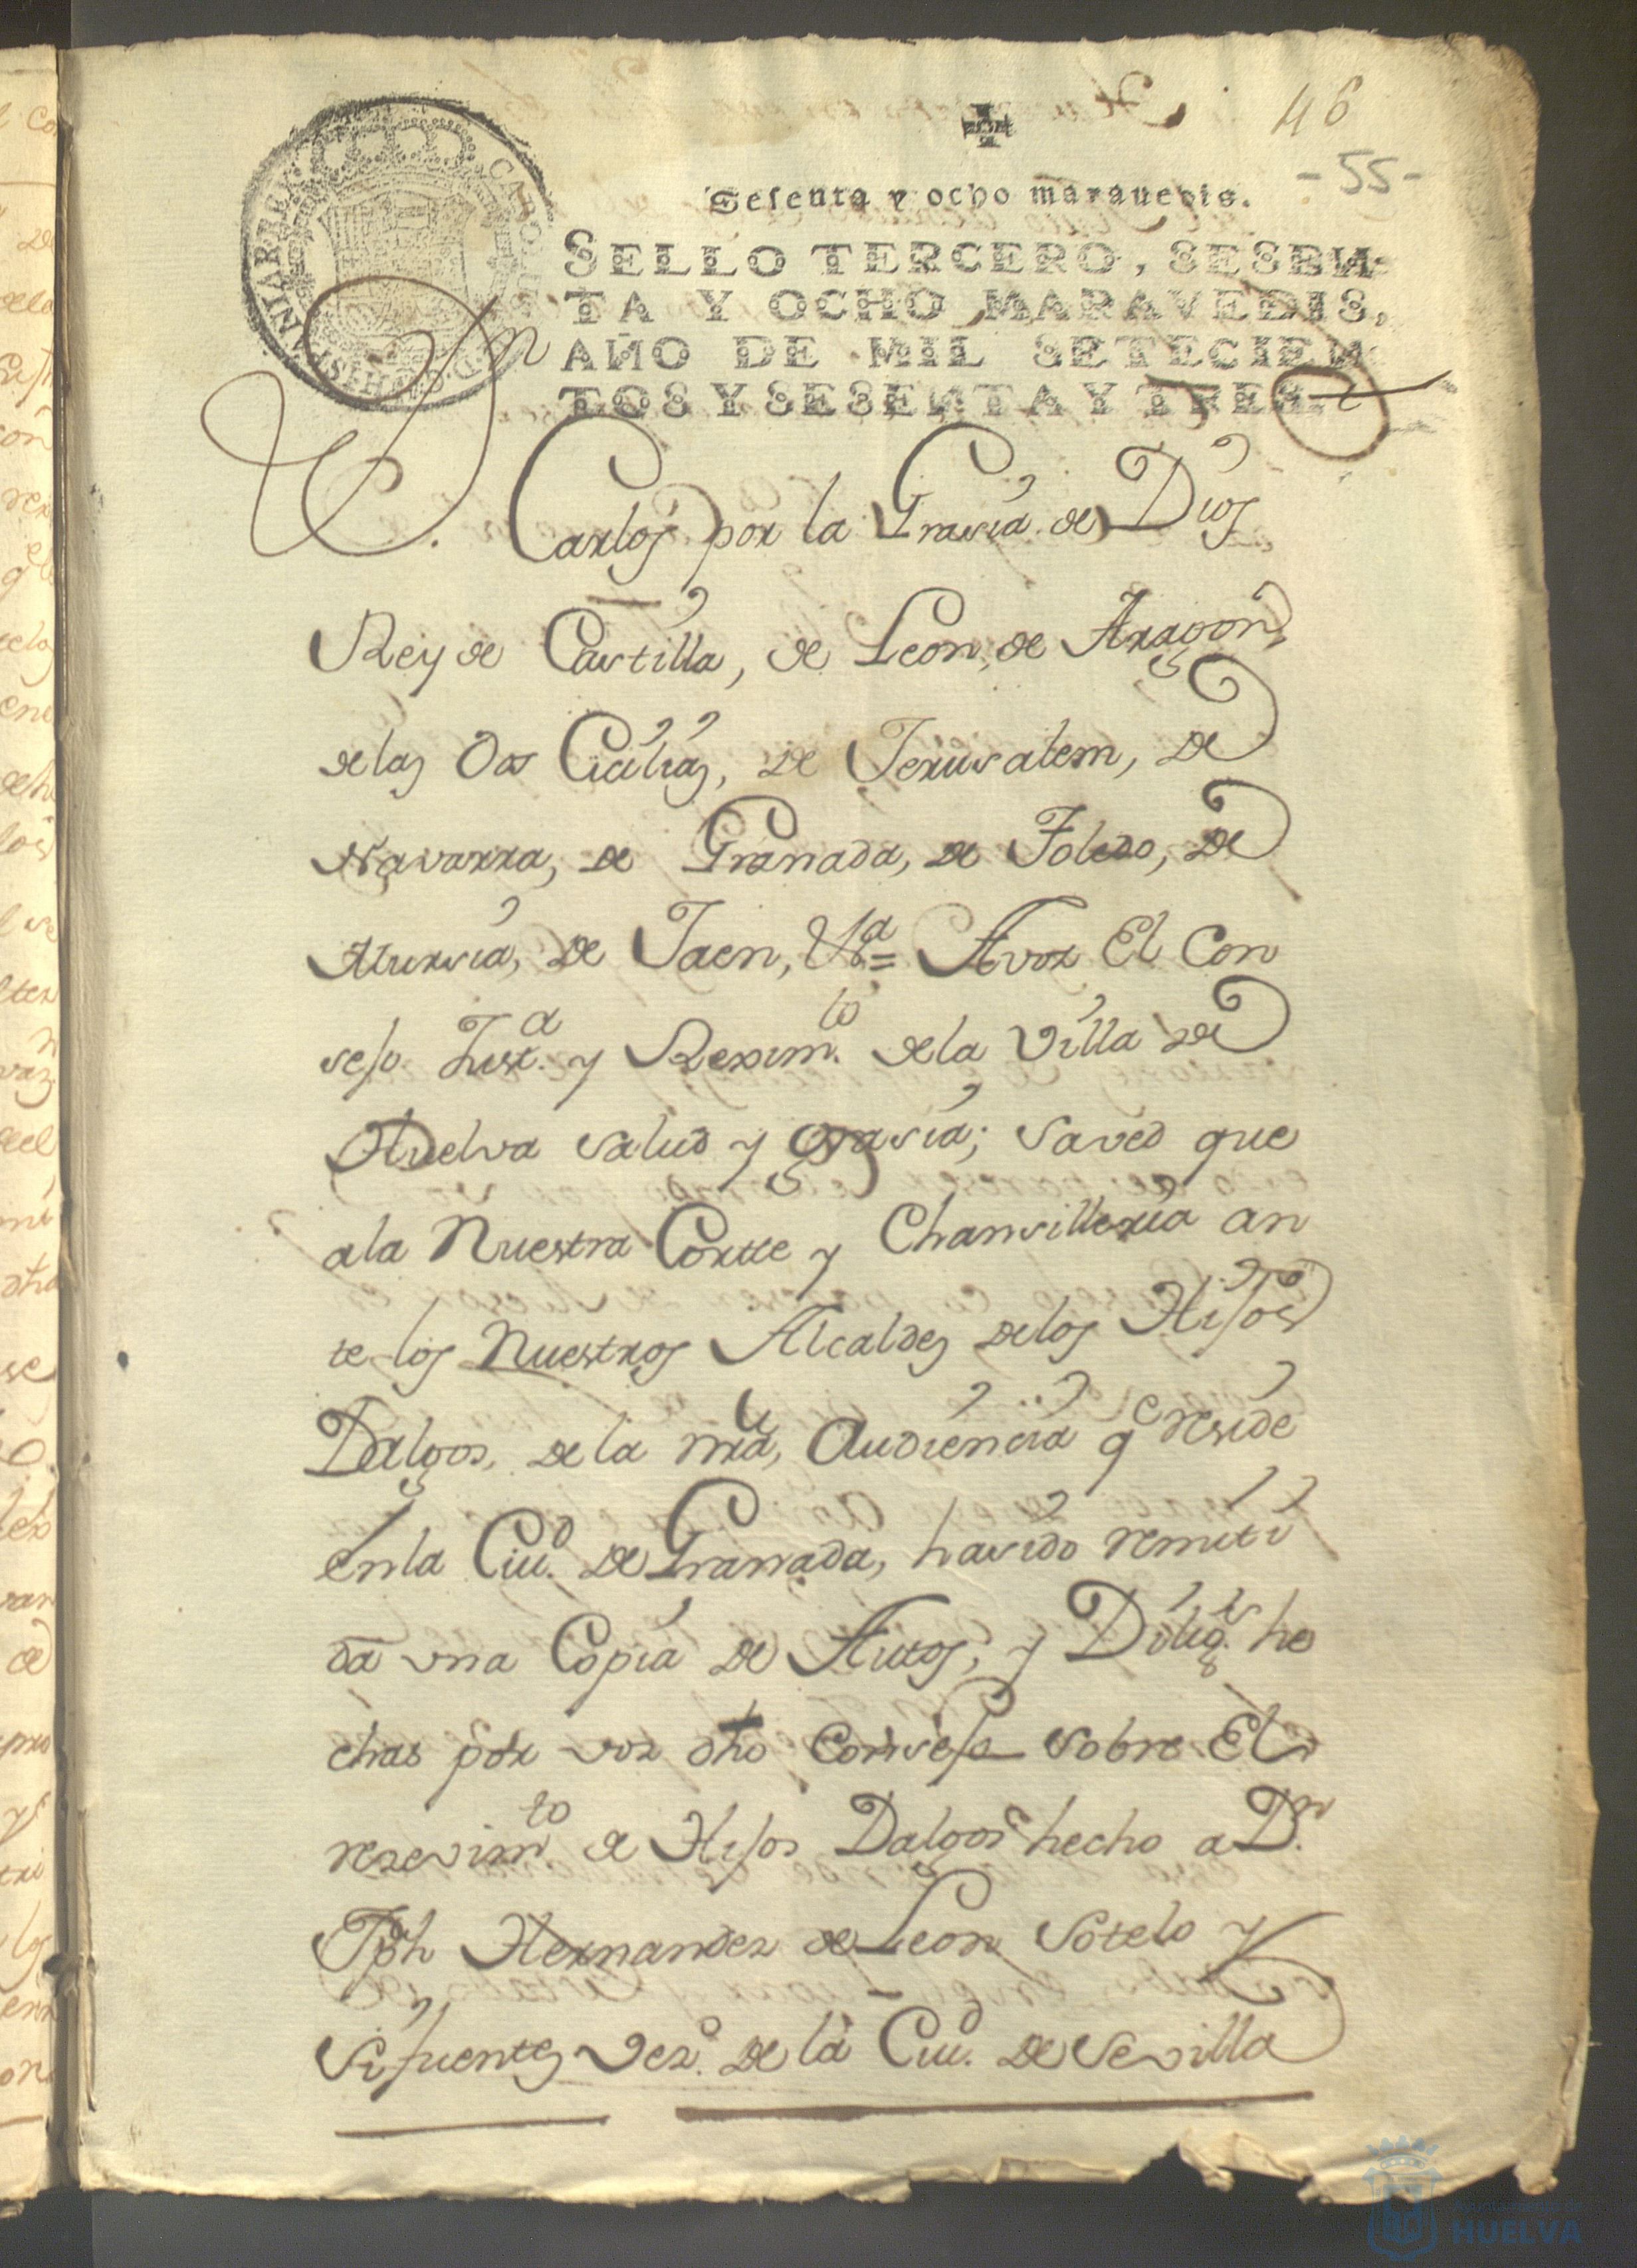 46
-55-
Sesenta y ocho marauedis.
SELLO TERCERO, SESEN-
TA Y OCHO MARAVEDIS,
AÑO DE MIL SETECIEN
TOS Y SESENTA Y TRES.
CAROLUS III D G HISPANIAR REX
Dn
Carlos por la Grasia de Dios
Rey de Castilla, de Leon, de Aragon,
delas Dos Cicilias, de Jerusalem, de
Navarra, de Granada, de Toledo, de
Mursia, de Jaen, &ª = Avos El Con
sejo Justª. y Reximto. dela Villa de
Huelva salud y grasia; saved que
ala Nuestra Cortte y Chansilleria an
te los Nuestros Alcaldes delos Hijos
Dalgos, de la nra, Audiencia qe reside
enla Ciud. de Granada, hasido remiti
da vna Copia de Autos, y Diligs. he
chas por vos dho Consejo sobre El
resevimto. de Hijos Dalgos hecho a Dn.
Jph Hernandez de Leon Sotelo y
Sifuentes Vezo. de la Ciud. de Sevilla
HUELVA